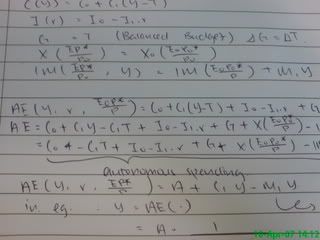 C(y) = C0 + C1(Y-T)
I(r) = I0 - I1.r
G = T (Balanced Budget) ΔG = ΔT
X(EP*/P0) = X0(E0P0*/P0)
IM(EP*/P0, Y) = IM(E0P0*/P) + M1Y
AE(Y, r, E0P0*/P) = C0 + C1(Y-T) + I0 - I1.r + G
AE = C0 + C1Y - C1T + I0 - I1.r + G + X(E0P0*/P) - IM
= (C0 - C1T + I0 - I1.r + G + X(E0P0*/P) - IM
autonomous spending
AE(Y, r, EP*/P) = A + C1Y - M1Y
in eq. Y = AE(·)
= A. 1
18-Apr-07 14:12